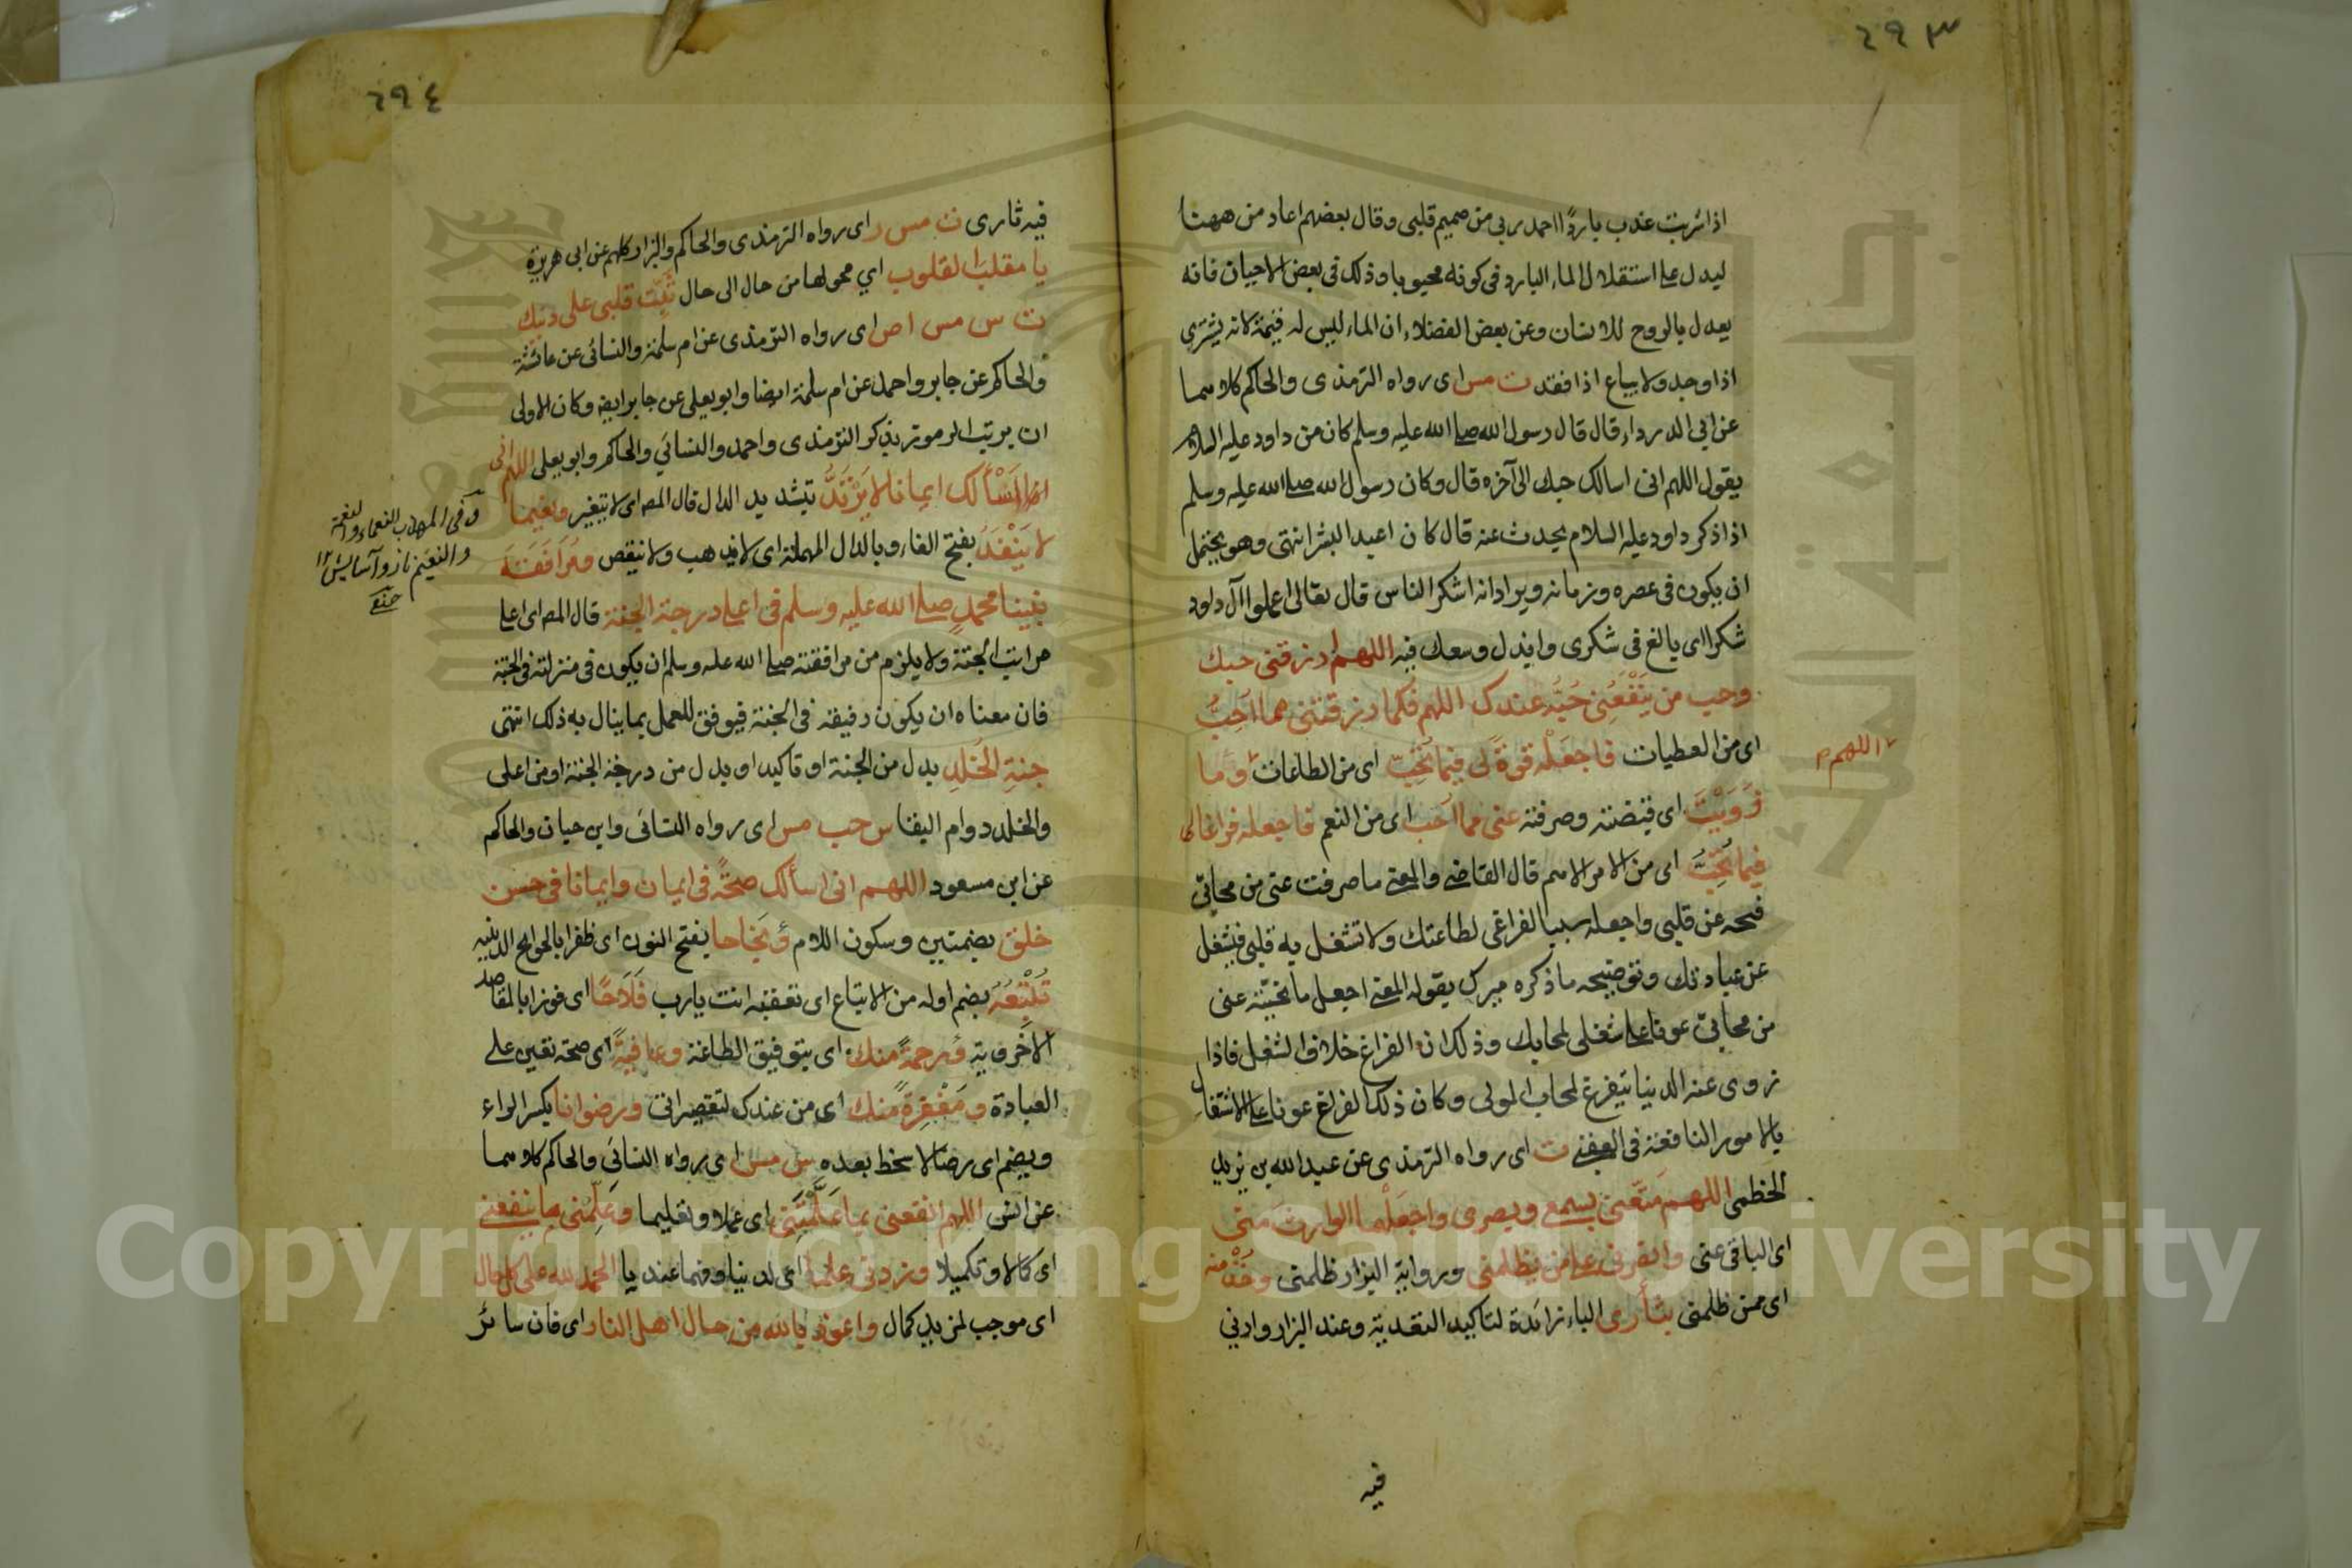 ٢٩٣
اذا شربت عذب باردا احمد ربي من صميم قلبي وقال بعضهم اعاد من ههنا
ليدل على استقلال الماء البارد في كونه محبوبا وذلك في بعض الاحيان فانه
يعدل بالروح للانسان وعن بعض الفضلاء ان الماء ليس له قيمة لانه يشترى
اذا وجد ولا يباع اذا فقد ت مس اى رواه الترمذى والحاكم كلاهما
عن ابي الدرداء قال قال رسول الله صلى الله عليه وسلم كان من داود عليه السلام
يقول اللهم انى اسالك حبك الى آخره قال وكان رسول الله صلى الله عليه وسلم
اذا ذكر داود عليه السلام يحدث عنه قال كان اعبد البشر انتهى وهو يحتمل
ان يكون فى عصره وزمانه ويراد انه اشكر الناس قال تعالى اعملوا آل داود
شكرا اى بالغ فى شكرى وابذل وسعك فيه اللهم ارزقنى حبك
وحب من يَنْفَعُنِى حُبُّه عندك اللهم فكما رزقتنى مما اُحِبُّ
اى من العطيات فاجعَلْه قوةً لى فيما تُحِبُّ اى من الطاعات وما
اللهم م
زَوَيْتَ اى قبضته وصرفته عنى مما اُحب اى من النعم فاجعله فراغا لى
فيما تُحِبُّ اى من الامر الاهم قال القاضى والمعنى ما صرفت عنى من محابى
فنحه عن قلبى واجعله سببا لفراغى لطاعتك ولا تشغل به قلبى فيشغل
عن عبادتك وتوضيحه ما ذكره ميرك بقوله المعنى اجعل ما نحيته عنى
من محابى عونا على شغلى لمحابك وذلك ان الفراغ خلاف الشغل فاذا
زوى عنه الدنيا يتفرغ لمحاب المولى وكان ذلك الفراغ عونا على الاشتغال
بالامور النافعة فى العقبى ت اى رواه الترمذى عن عبد الله بن يزيد
الخطمى اللهم مَتِّعنى بسمعى وبصرى واجعَلْهما الوارث منى
اى الباقى عنى وانصرنى على من يظلمنى ورواية البزار ظلمنى وخُذْ منه
اى ممن ظلمنى بثأرى الباء زائدة لتاكيد التعدية وعند البزار وارنى
فيه
٢٩٤
فيه ثارى ت مس ر اى رواه الترمذى والحاكم والبزار كلهم عن ابى هريرة
يا مقلب القلوب اي محولها من حال الى حال ثَبِّت قلبى على دينك
ت س مس ا ص اى رواه الترمذى عن ام سلمة والنسائى عن عائشة
والحاكم عن جابر واحمد عن ام سلمة ايضا وابو يعلى عن جابر ايضا وكان الاولى
ان يرتب الرموز بذكر الترمذى واحمد والنسائي والحاكم وابو يعلى اللهم انى
اسألك ايمانا لا يَرْتَدُّ بتشديد الدال قال المصـ اى لا يتغير ونعيما
لا يَنْفَدُ بفتح الفاء وبالدال المهملة اى لا يذهب ولا ينقص ومُرَافَقَة
نبينا محمدٍ صلى الله عليه وسلم فى اعلى درجة الجنة قال المصـ اى اعلى
مراتب الجنة ولا يلزم من مرافقته صلى الله عليه وسلم ان يكون فى منزلته فى الجنة
فان معناه ان يكون رفيقه فى الجنة فيوفق للعمل بما ينال به ذلك انتهى
جنةِ الخُلدِ بدل من الجنة او تاكيد او بدل من درجة الجنة او من اعلى
والخلد دوام البقا س حب مس اى رواه النسائى وابن حبان والحاكم
عن ابن مسعود اللهم انى اسألك صحَّةً فى ايمان وايمانا فى حسن
خلق بضمتين وسكون اللام ونَجَاحا بفتح النون اى ظفرا بالحوايج الدينيه
تُتْبِعُه بضم اوله من الاتباع اى تعقبه انت يارب فَلَاحًا اى فوزا بالمقاصد
الاخروية ورحمةً منك اى بتوفيق الطاعة وعافيةً اى صحة تعين على
العبادة ومَغْفِرةً منك اى من عندك لتقصيراتى ورضوانا بكسر الراء
وبضم اى رضا لا سخط بعده س مس اى رواه النسائى والحاكم كلاهما
عن انس اللهم انفعنى بما عَلَّمْتَنى اى عملا وتعليما وعَلِّمْنى ما ينفعنى
اى كمالا وتكميلا وزدنى علما اى لدنيا وفهما عنديا الحمد لله على كل حال
اى موجب لمزيد كمال واعوذ بالله من حال اهل النار اى فان سائر
وفى المهذب النعماء والنعمة
والنعيم ناز وآسايش ١٢